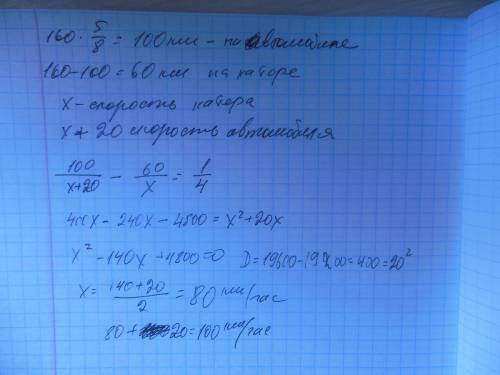 160 · 5/8 = 100 км – на автомобиле
160-100 = 60 км на катере
x – скорость катера
x + 20 скорость автомобиля
100/(x+20) – 60/x = 1/4
400x – 240x – 4800 = x² + 20x
x² – 140x + 4800 = 0 D = 19600 – 19200 = 400 = 20²
x = (140+20)/2 = 80 км/час
80 + 20 = 100 км/час